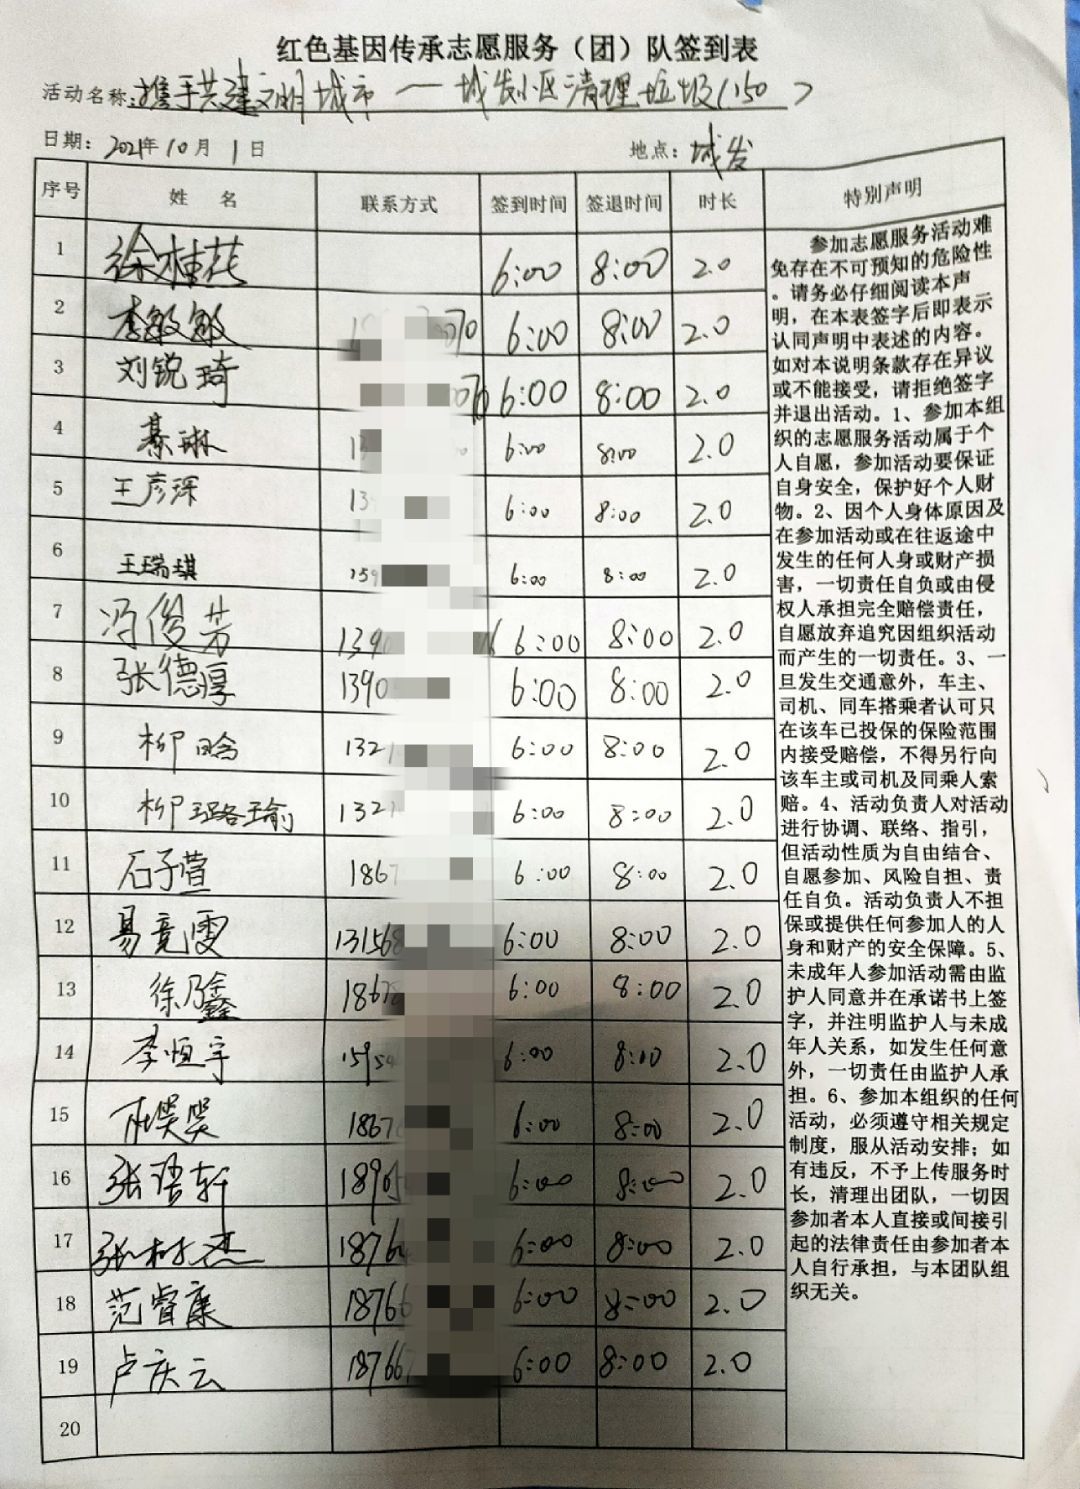 红色基因传承志愿服务（团）队签到表
活动名称：携手共建文明城市 — 城发小区清理垃圾（150）
日期：2021年10月1日 地点：城发
序号 姓名 联系方式 签到时间 签退时间 时长 特别声明
1 徐桂花 6:00 8:00 2.0
2 李敏敏 6:00 8:00 2.0
3 刘锐琦 6:00 8:00 2.0
4 綦琳 6:00 8:00 2.0
5 王彦琛 13 6:00 8:00 2.0
6 王瑞琪 159 6:00 8:00 2.0
7 冯俊芳 1390 6:00 8:00 2.0
8 张德厚 1390 6:00 8:00 2.0
9 柳 132 6:00 8:00 2.0
10 柳璐瑜 132 6:00 8:00 2.0
11 石子萱 1867 6:00 8:00 2.0
12 易竟雯 131568 6:00 8:00 2.0
13 徐乃鑫 1867 6:00 8:00 2.0
14 李恒宇 1595 6:00 8:00 2.0
15 1867 6:00 8:00 2.0
16 张语轩 18965 6:00 8:00 2.0
17 张树杰 18764 6:00 8:00 2.0
18 范睿康 18766 6:00 8:00 2.0
19 卢庆云 187667 6:00 8:00 2.0
20
参加志愿服务活动难
免存在不可预知的危险性
。请务必仔细阅读本声
明，在本表签字后即表示
认同声明中表述的内容。
如对本说明条款存在异议
或不能接受，请拒绝签字
并退出活动。1、参加本组
织的志愿服务活动属于个
人自愿，参加活动要保证
自身安全，保护好个人财
物。2、因个人身体原因及
在参加活动或在往返途中
发生的任何人身或财产损
害，一切责任自负或由侵
权人承担完全赔偿责任，
自愿放弃追究因组织活动
而产生的一切责任。3、一
旦发生交通意外，车主、
司机、同车搭乘者认可只
在该车已投保的保险范围
内接受赔偿，不得另行向
该车主或司机及同乘人索
赔。4、活动负责人对活动
进行协调、联络、指引，
但活动性质为自由结合、
自愿参加、风险自担、责
任自负。活动负责人不担
保或提供任何参加人的人
身和财产的安全保障。5、
未成年人参加活动需由监
护人同意并在承诺书上签
字，并注明监护人与未成
年人关系，如发生任何意
外，一切责任由监护人承
担。6、参加本组织的任何
活动，必须遵守相关规定
制度，服从活动安排；如
有违反，不予上传服务时
长，清理出团队，一切因
参加者本人直接或间接引
起的法律责任由参加者本
人自行承担，与本团队组
织无关。